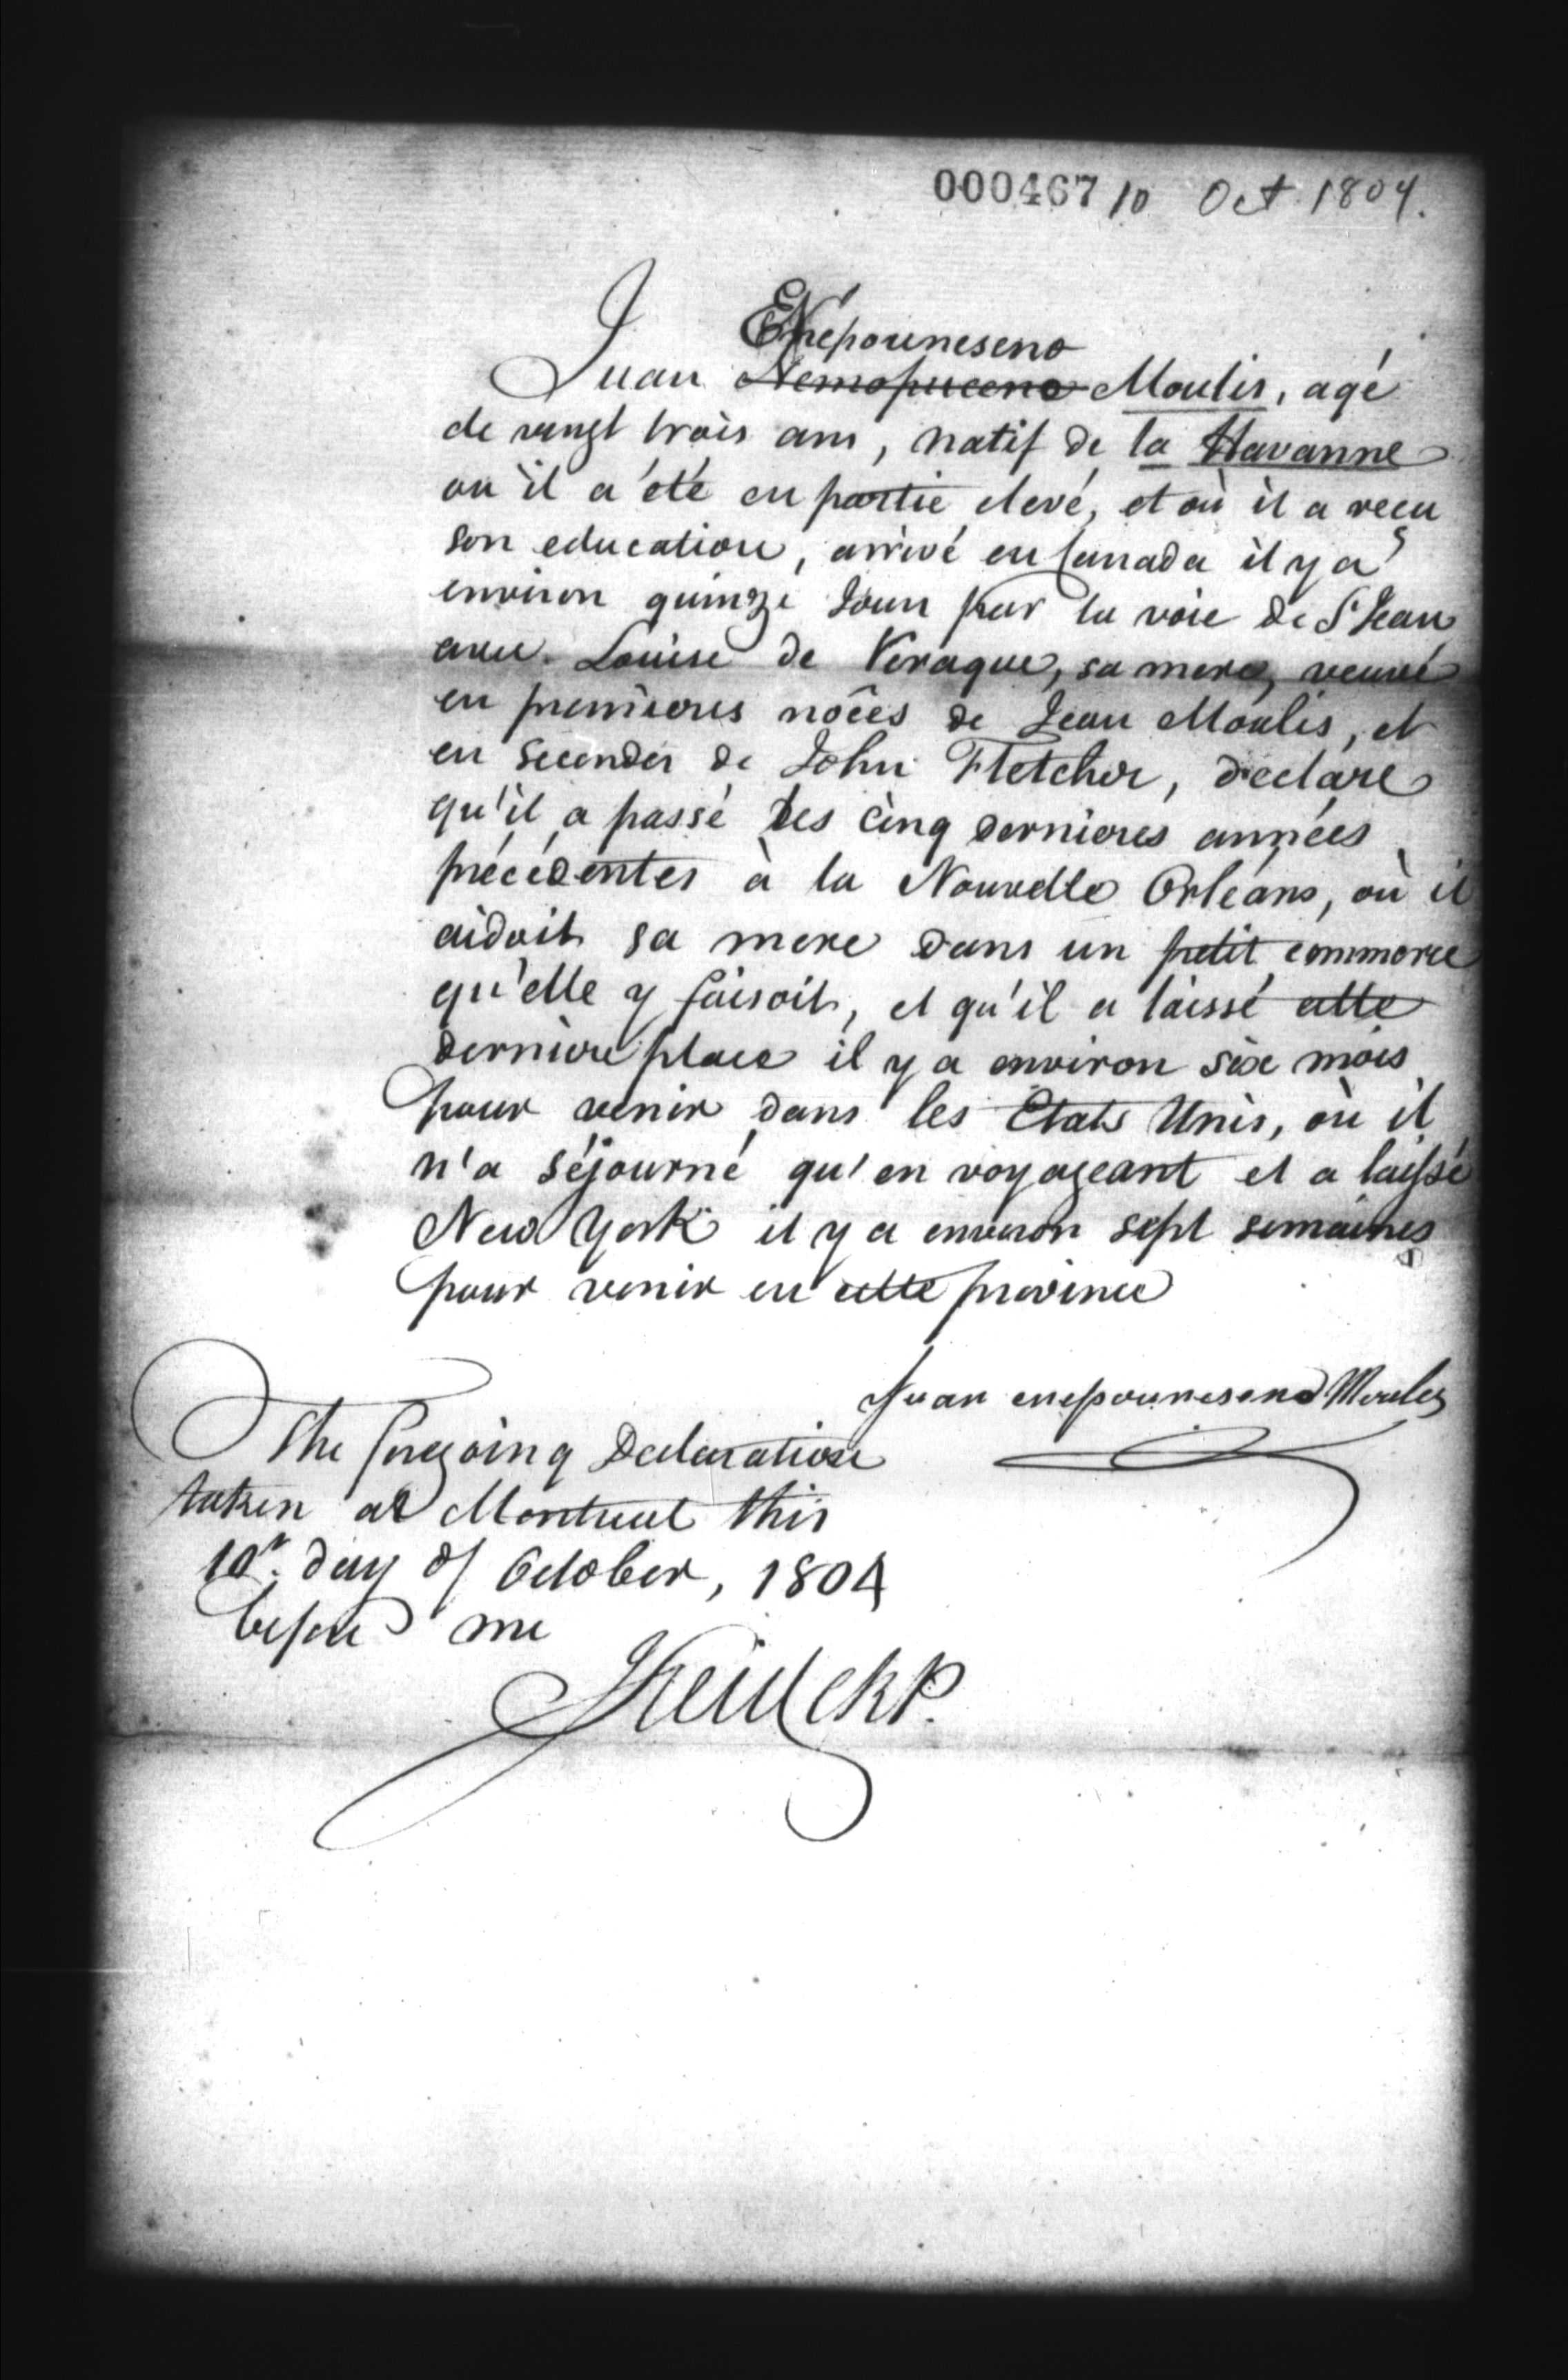 000467 10 Oct 1804.
Enepouneseno
Juan Nemopuceno Moulis, agé
de vingt trois ans, natif de la Havanne
ou il a été en partie elevé, et où il a reçu
son education, arrivé en Canada il y a
environ quinze Jours par la voie de St Jean
avec Louise de Veraque, sa mere, veuve
en premieres nôces de Jean Moulis, et
en secondes de John Fletcher, declare
qu'il a passé les cinq dernieres années
précédentes à la Nouvelle Orléans, où il
aidoit sa mere dans un petit commerce
qu'elle y faisoit, et qu'il a laissé cette
derniere place il y a environ six mois
pour venir dans les Etats Unis, où il
n'a séjourné qu'en voyageant et a laissé
New York il y a environ sept semaines
pour venir en cette province
Juan enepouneseno Moules
The foregoing Declaration
taken at Montreal this
10th. day of October, 1804
before me